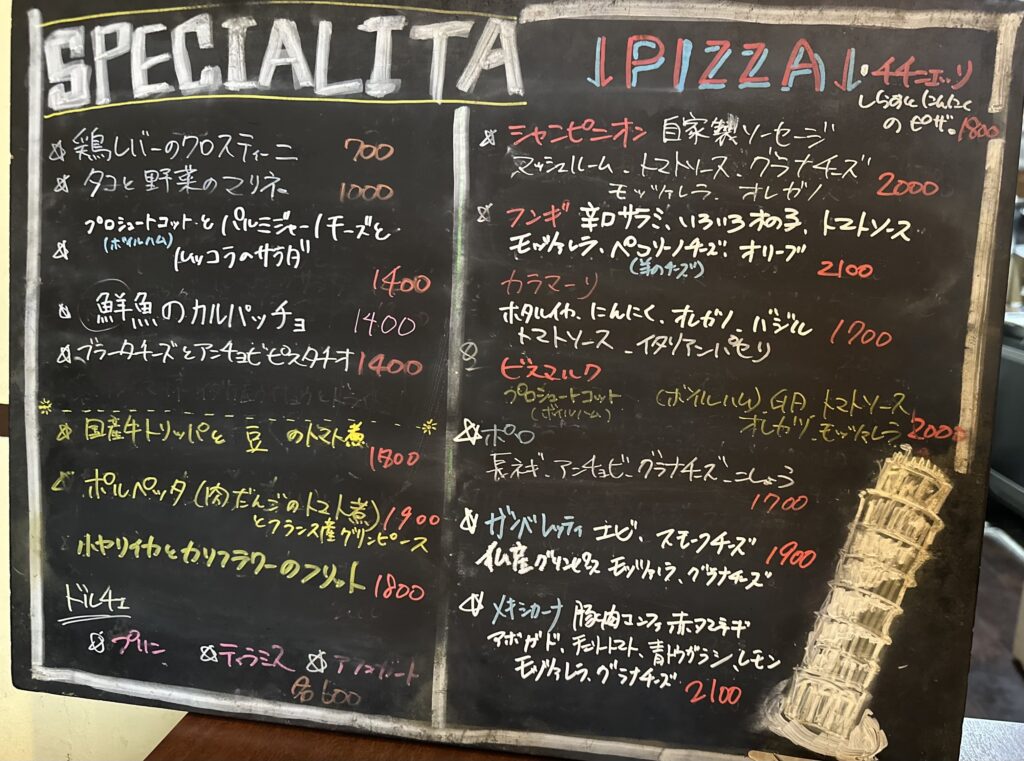 SPECIALITA
鶏レバーのクロスティーニ 700
タコと野菜のマリネ 1000
プロシュートコットと パルミジャーノチーズと
(ボイルハム)
ルッコラのサラダ
1400
鮮魚のカルパッチョ 1400
ブラータチーズとアンチョビピスタチオ 1400
国産牛トリッパと 豆 のトマト煮
1800
ポルペッタ (肉だんごのトマト煮) 1900
とフランス産グリンピース
小ヤリイカとカリフラワーのフリット 1800
ドルチェ
プリン ティラミス アフォガート
各600
↓PIZZA↓
しらすとにんにく
のピザ 1800
シャンピニオン 自家製ソーセージ
マッシュルーム、トマトソース、グラナチーズ
モッツァレラ、オレガノ 2000
フンギ 辛口サラミ、いろいろきの子、トマトソース
モッツァレラ、ペコリーノチーズ、オリーブ
(羊のチーズ) 2100
カラマーリ
ホタルイカ、にんにく、オレガノ、バジル 1700
トマトソース、イタリアンパセリ
ビスマルク
プロシュートコット (ボイルハム) 卵 トマトソース
(ボイルハム) オレガノ、モッツァレラ 2000
ポロ
長ネギ、アンチョビ、グラナチーズ、こしょう
1700
ガンベレッティ エビ、スモークチーズ 1900
仏産グリンピース モッツァレラ、グラナチーズ
メキシカーナ 豚肉コンフィ 赤タマネギ
アボガド、チェリートマト、青トウガラシ、レモン
モッツァレラ、グラナチーズ 2100